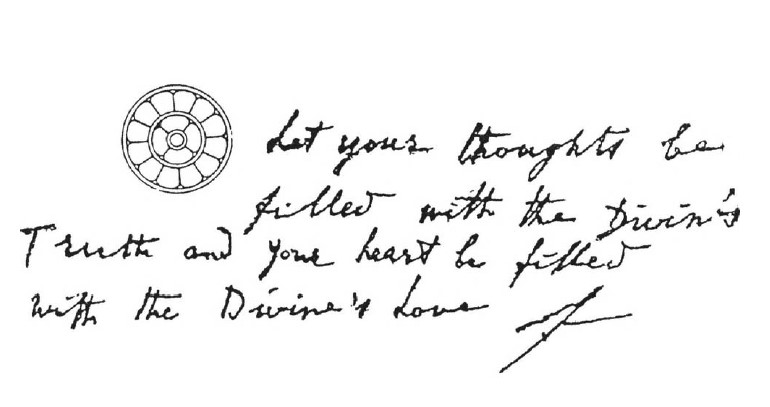 Let your thoughts be
filled with the Divin's
Truth and your heart be filled
with the Divine's Love